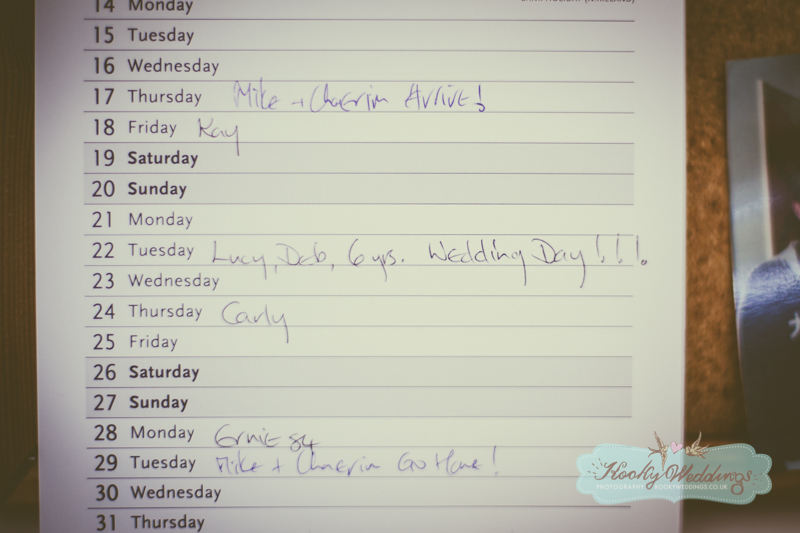 14 Monday BANK HOLIDAY (N.IRELAND)
15 Tuesday
16 Wednesday
17 Thursday Mike + Chaerim Arrive!
18 Friday Kay
19 Saturday
20 Sunday
21 Monday
22 Tuesday Lucy, Deb, 6 yrs. Wedding Day!!!.
23 Wednesday
24 Thursday Carly
25 Friday
26 Saturday
27 Sunday
28 Monday Ernie 84
29 Tuesday Mike + Chaerim Go Home!
30 Wednesday
31 Thursday
Kooky Weddings
PHOTOGRAPHY KOOKYWEDDINGS.CO.UK